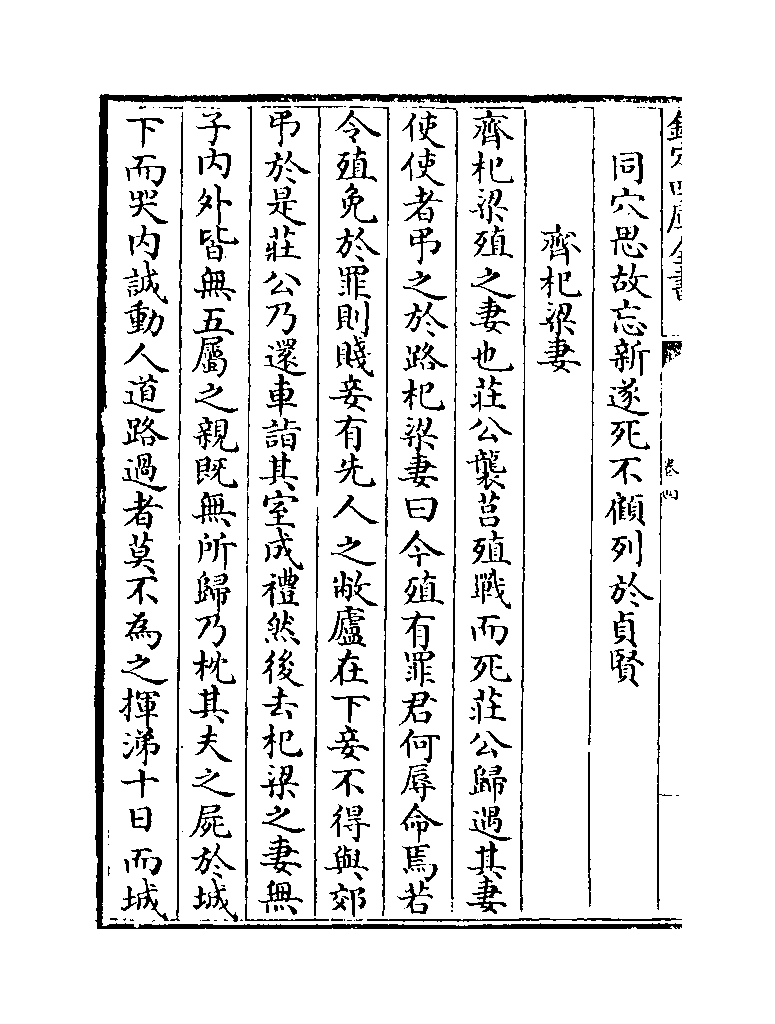 欽定四庫全書
卷四
同穴思故忘新遂死不顧列於貞賢
齊杞梁妻
齊杞梁殖之妻也莊公襲莒殖戰而死莊公歸遇其妻
使使者弔之於路杞梁妻曰今殖有罪君何辱命焉若
令殖免於罪則賤妾有先人之敝廬在下妾不得與郊
弔於是莊公乃還車詣其室成禮然後去杞梁之妻無
子內外皆無五屬之親既無所歸乃枕其夫之屍於城
下而哭內諴動人道路過者莫不為之揮涕十日而城